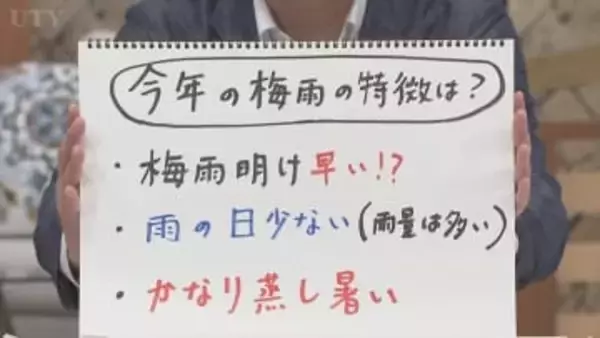 UTY
今年の梅雨の特徴は?
・梅雨明け早い!?
・雨の日少ない(雨量は多い)
・かなり蒸し暑い